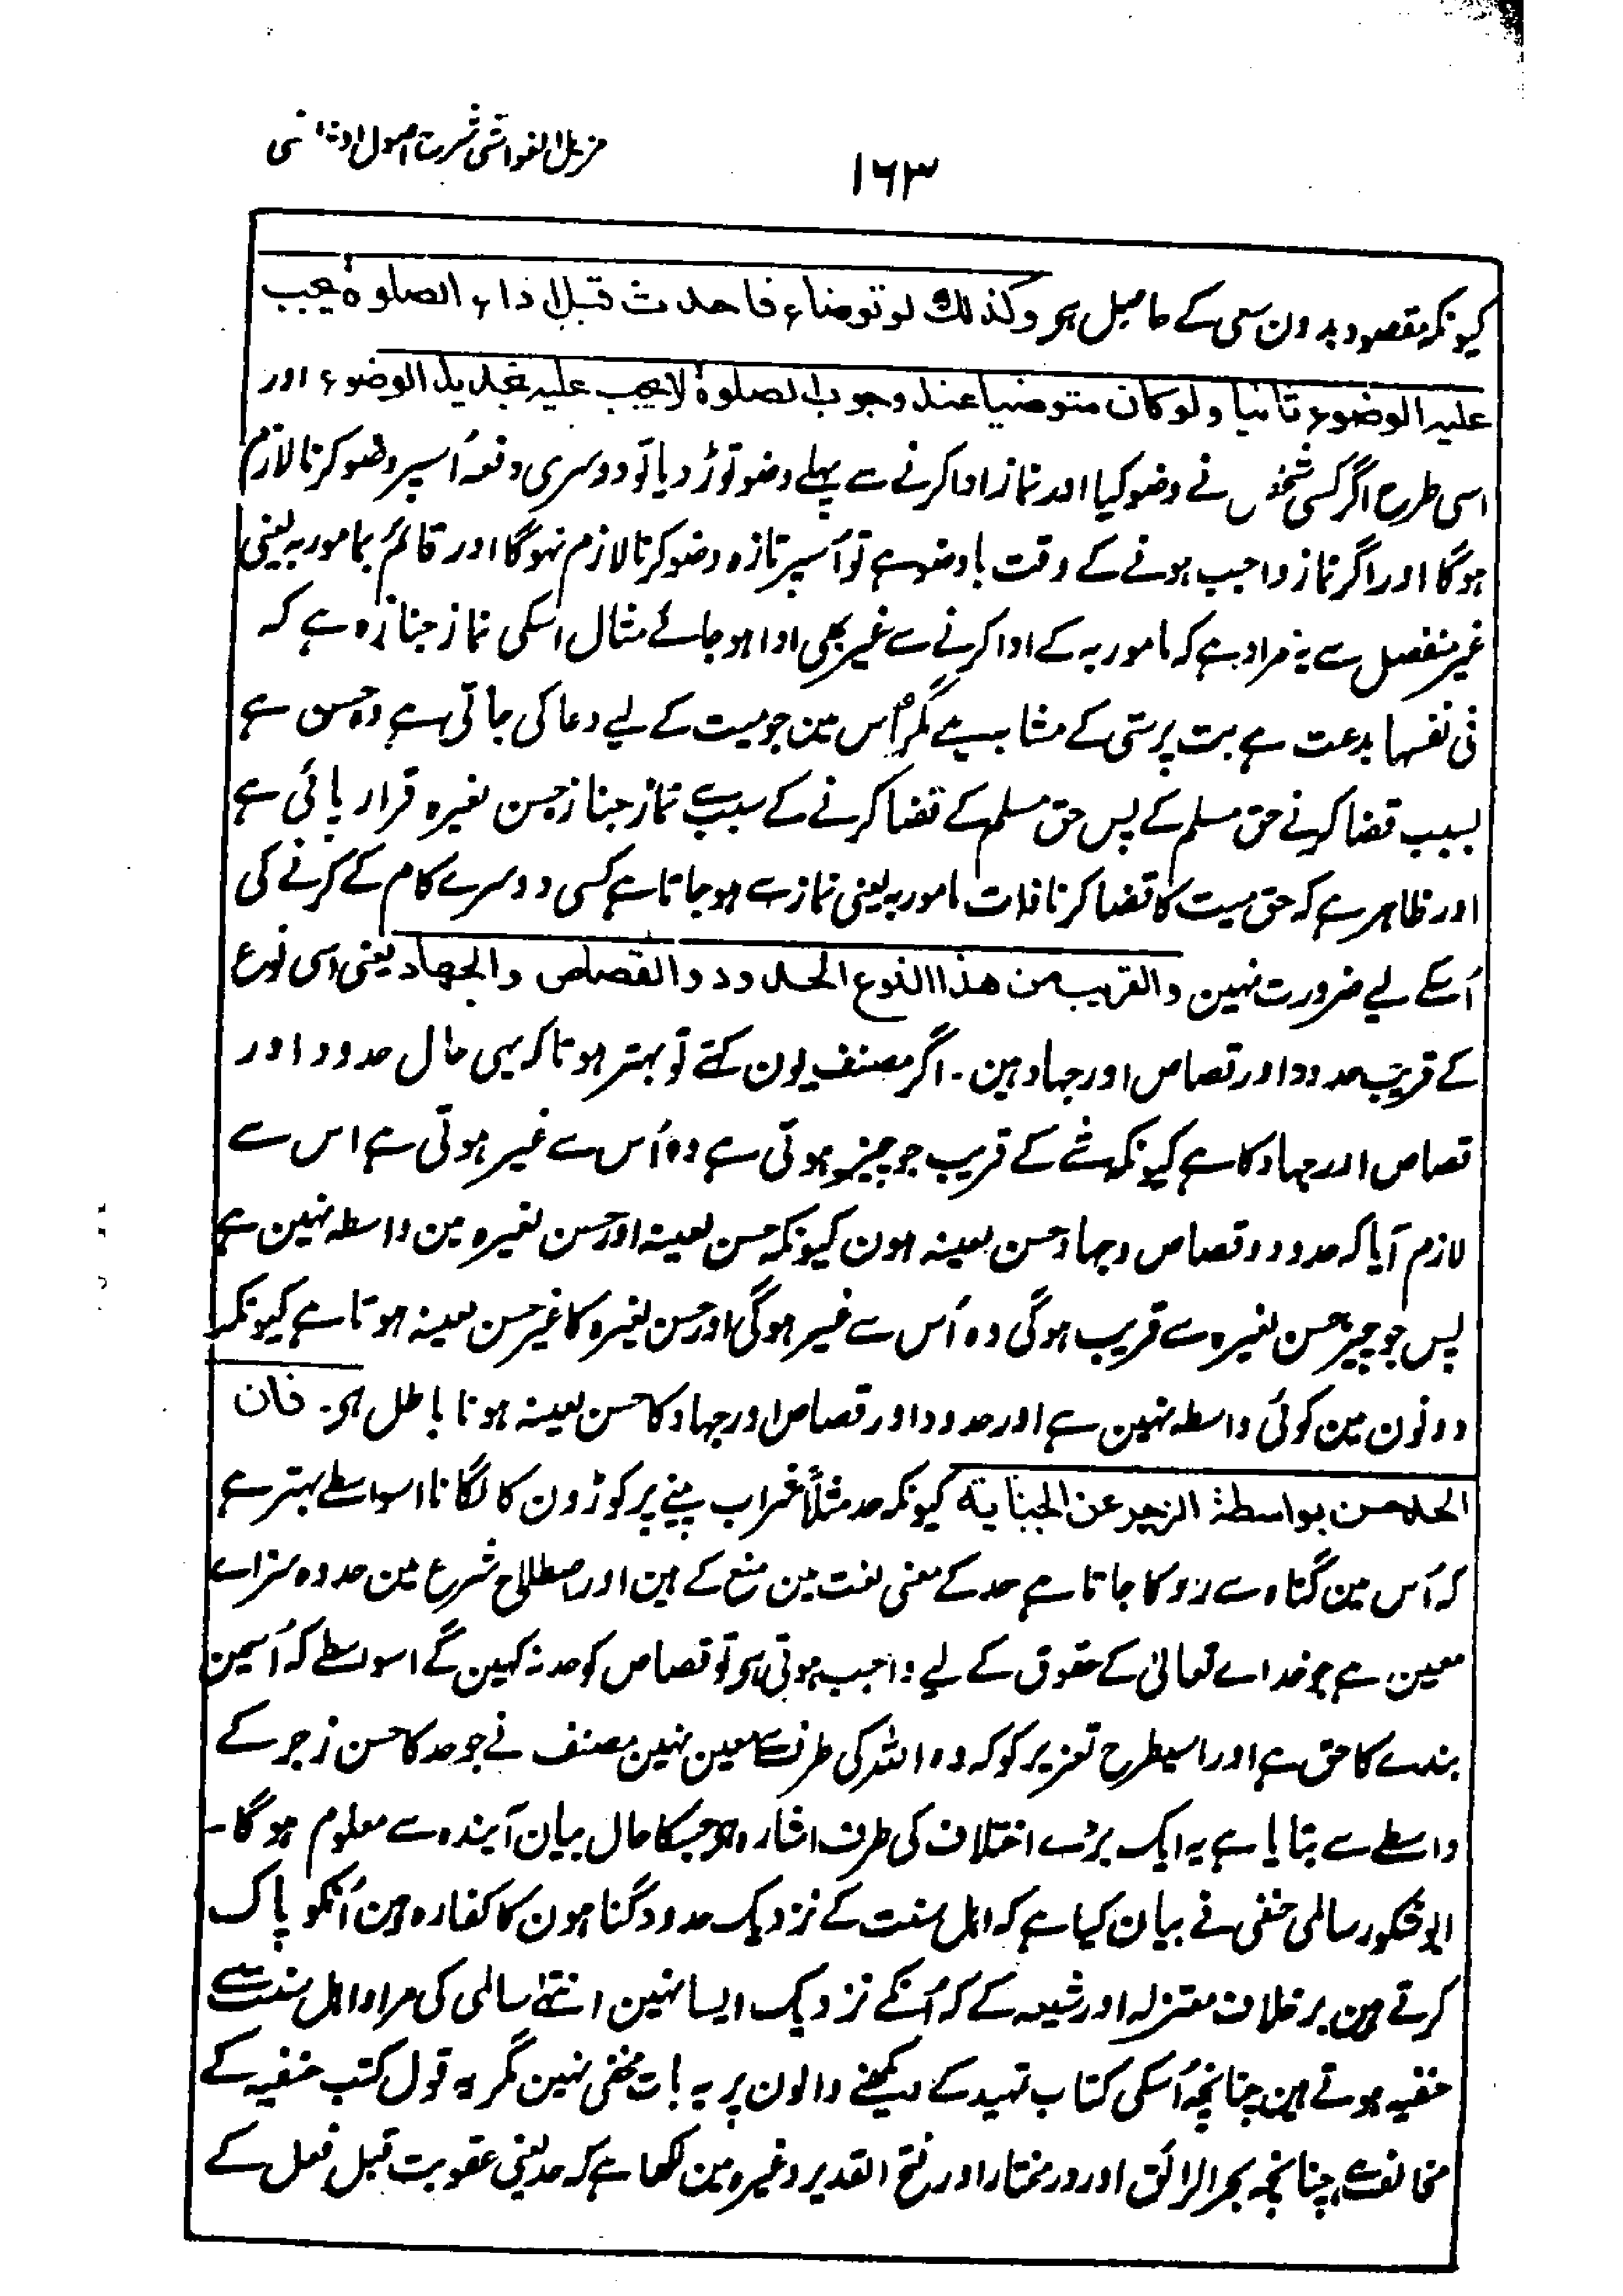 مزیل الغواشی شرح اصول الشاشی
۱۶۳
کیونکہ مقصود بدون سعی کے حاصل ہی وکذلك لو توضاء فاحدث قبل اداء الصلوة یجب
علیہ الوضوء ثانیا ولو کان متوضیا عند وجوب الصلوة لا یجب علیہ تجدید الوضوء اور
اسی طرح اگر کسی شخص نے وضو کیا اور نماز ادا کرنے سے پہلے وضو توڑ دیا تو دوسری دفعہ اُسپر وضو کرنا لازم
ہوگا اور اگر نماز واجب ہونے کے وقت باوضو ہے تو اُسپر تازہ وضو کرنا لازم نہوگا اور قائم بمامور بہ یعنی
غیر منفصل سے یہ مراد ہے کہ مامور بہ کے ادا کرنے سے غیر بھی ادا ہو جائے مثال اسکی نماز جنازہ ہے کہ
فی نفسہا بدعت ہے بت پرستی کے مشابہ ہے مگر اُس مین جو میت کے لیے دعا کی جاتی ہے وہ حسن ہے
بسبب قضا کرنے حق مسلم کے پس حق مسلم کے قضا کرنے کے سبب سے نماز جنازہ حسن لغیرہ قرار پائی ہے
اور ظاہر ہے کہ حق میت کا قضا کرنا ذات مامور بہ یعنی نماز سے ہو جاتا ہے کسی دوسرے کام کے کرنے کی
اُسکے لیے ضرورت نہین والقریب من ھذا النوع الحدود والقصاص والجھاد یعنی اسی نوع
کے قریب حدود اور قصاص اور جہاد ہین۔ اگر مصنف یون کہتے تو بہتر ہوتا کہ یہی حال حدود اور
قصاص اور جہاد کا ہے کیونکہ شے کے قریب جو چیز ہوتی ہے وہ اُس سے غیر ہوتی ہے اس سے
لازم آیا کہ حدود و قصاص و جہاد حسن بعینہ ہون کیونکہ حسن لعینہ اور حسن لغیرہ مین واسطہ نہین ہے
پس جو چیز حسن لغیرہ سے قریب ہوگی وہ اُس سے غیر ہوگی اور حسن لغیرہ کا غیر حسن لعینہ ہوتا ہے کیونکہ
دونون مین کوئی واسطہ نہین ہے اور حدود اور قصاص اور جہاد کا حسن لعینہ ہونا باطل ہی۔ فان
الحد حسن بواسطة الزجر عن الجنایة کیونکہ حد مثلاً شراب پینے پر کوڑون کا لگانا اسواسطے بہتر ہے
کہ اُس مین گناہ سے روکا جاتا ہے حد کے معنی لغت مین منع کے ہین اور اصطلاح شرع مین حد وہ سزاے
معین ہے جو خداے تعالیٰ کے حقوق کے لیے واجب ہوتی ہی تو قصاص کو حد نہ کہین گے اسواسطے کہ اُسمین
بندے کا حق ہے اور اسیطرح تعزیر کو کہ وہ اللہ کی طرف سے معین نہین مصنف نے جو حد کا حسن زجر کے
واسطے سے بتایا ہے یہ ایک بڑے اختلاف کی طرف اشارہ ہی جسکا حال بیان آیندہ سے معلوم ہوگا۔
ابو شکور سالمی حنفی نے بیان کیا ہے کہ اہل سنت کے نزدیک حدود گناہون کا کفارہ ہین اُنکو پاک
کرتے ہین برخلاف معتزلہ اور شیعہ کے کہ اُنکے نزدیک ایسا نہین انتہےٰ سالمی کی مراد اہل سنت سے
حنفیہ ہوتے ہین چنانچہ اُسکی کتاب تمہید کے دیکھنے والون پر یہ بات مخفی نہین مگر یہ قول کتب حنفیہ کے
مخالف ہے چنانچہ بحر الرائق اور در مختار اور فتح القدیر وغیرہ مین لکھا ہے کہ حد یعنی عقوبت قبل فعل کے